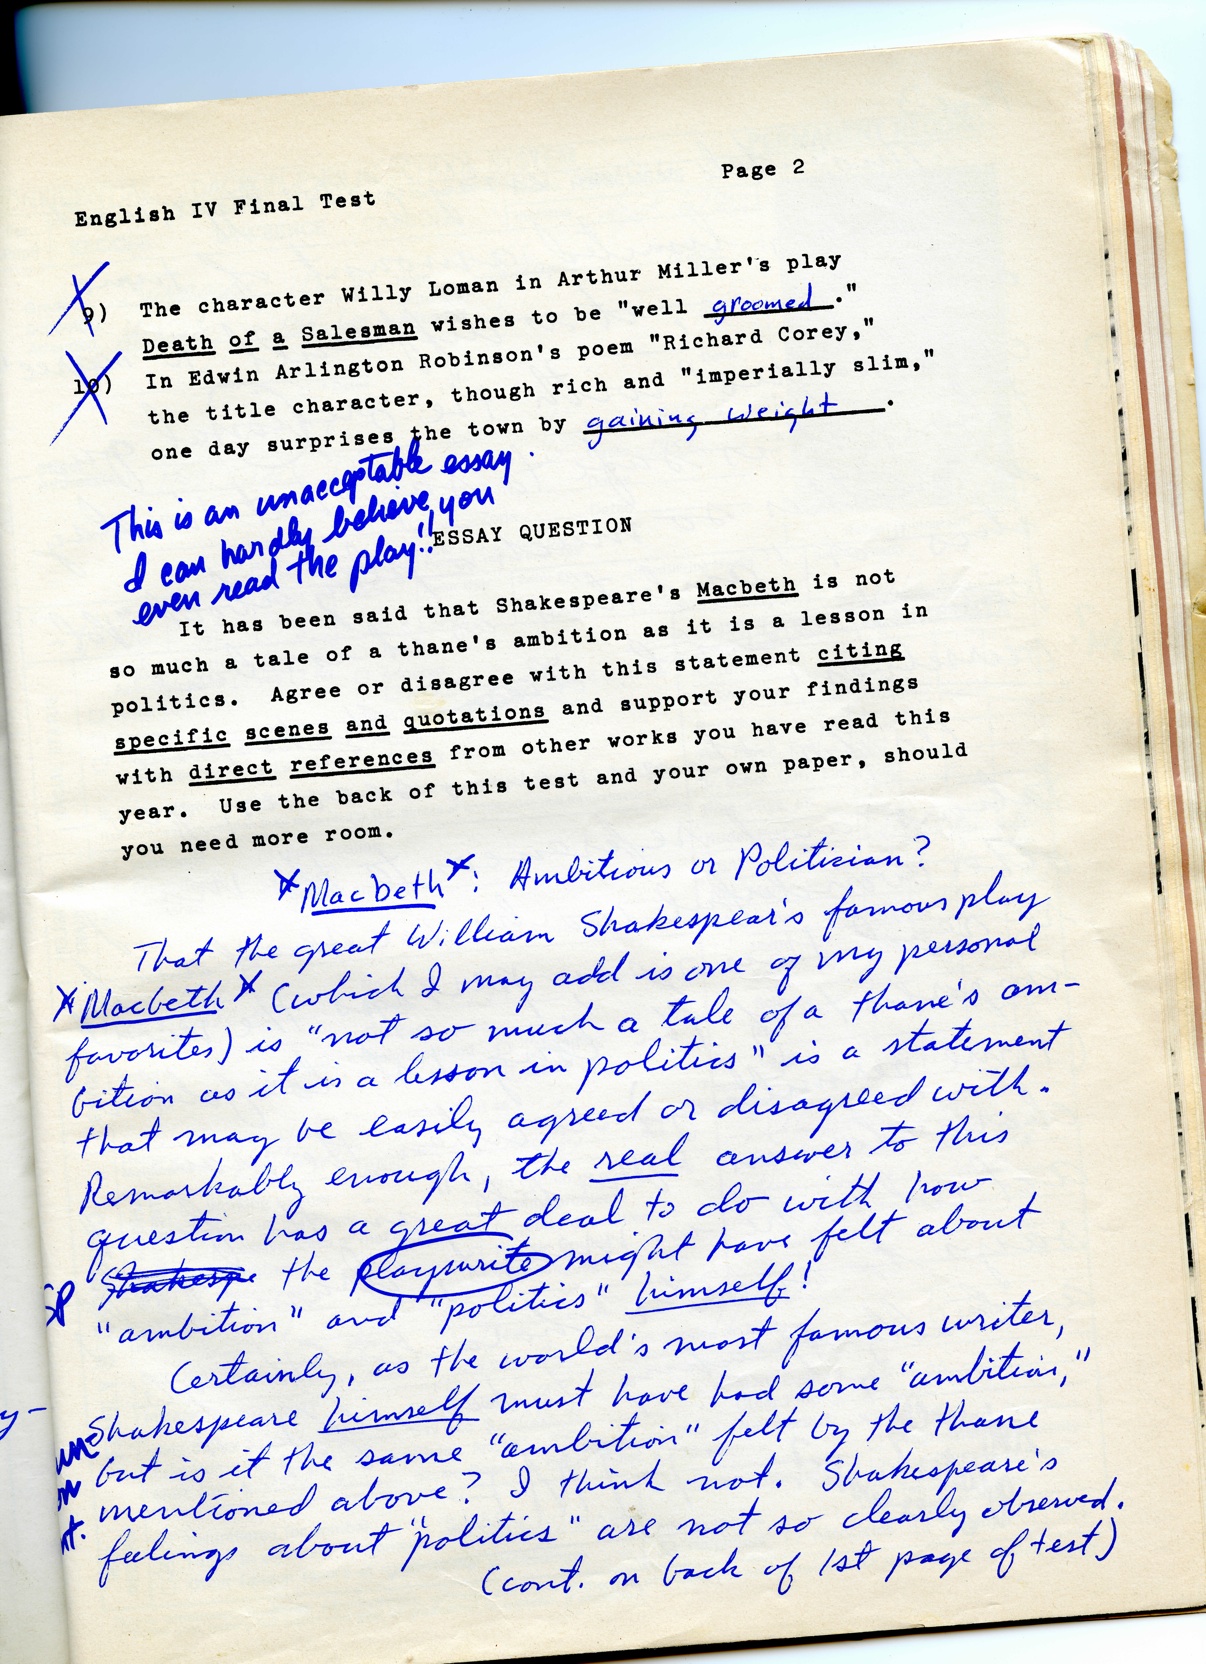 Page 2
English IV Final Test
9) The character Willy Loman in Arthur Miller's play
Death of a Salesman wishes to be "well groomed."
10) In Edwin Arlington Robinson's poem "Richard Corey,"
the title character, though rich and "imperially slim,"
one day surprises the town by gaining weight.
This is an unacceptable essay.
I can hardly believe you
even read the play!!
ESSAY QUESTION
It has been said that Shakespeare's Macbeth is not
so much a tale of a thane's ambition as it is a lesson in
politics. Agree or disagree with this statement citing
specific scenes and quotations and support your findings
with direct references from other works you have read this
year. Use the back of this test and your own paper, should
you need more room.
"Macbeth": Ambitious or Politician?
That the great William Shakespear's famous play
"Macbeth" (which I may add is one of my personal
favorites) is "not so much a tale of a thane's am-
bition as it is a lesson in politics" is a statement
that may be easily agreed or disagreed with.
Remarkably enough, the real answer to this
question has a great deal to do with how
Shakespe the playwrite might have felt about
SP
"ambition" and "politics" himself!
Certainly, as the world's most famous writer,
Shakespeare himself must have had some "ambition,"
but is it the same "ambition" felt by the thane
mentioned above? I think not. Shakespeare's
feelings about "politics" are not so clearly observed.
(cont. on back of 1st page of test)